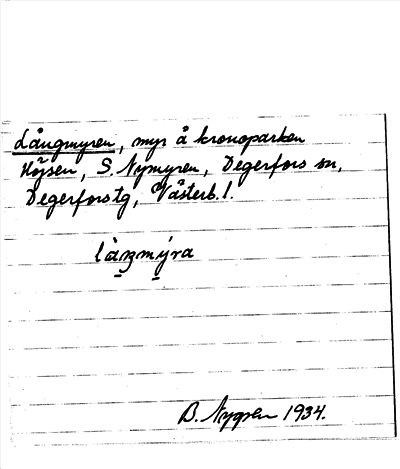 Långmyren, myr å kronoparken
Höjsen, S. Nymyren, Degerfors sn,
Degerfors tg, Västerb. l.
làŋmýra
B. Nygren 1934.